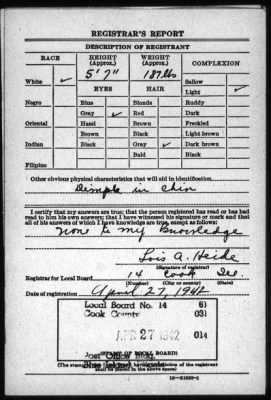 REGISTRAR'S REPORT
DESCRIPTION OF REGISTRANT
RACE HEIGHT (Approx.) WEIGHT (Approx.) COMPLEXION
5' 7" 187 lbs Sallow
White ✓ EYES HAIR Light ✓
Negro Blue Blonde Ruddy
Gray ✓ Red Dark
Oriental Hazel Brown Freckled
Brown Black Light brown
Indian Black Gray ✓ Dark brown
Bald Black
Filipino
Other obvious physical characteristics that will aid in identification
Dimple in chin
I certify that my answers are true; that the person registered has read or has had
read to him his own answers; that I have witnessed his signature or mark and that
all of his answers of which I have knowledge are true, except as follows:
None to my Knowledge
Lois A. Heide
(Signature of registrar)
Registrar for Local Board 14 Cook Ill.
(Number) (City or county) (State)
Date of registration April 27, 1942
Local Board No. 14 61
Cook County 031
APR 27 1942 014
Post Office Bldg.
(STAMP OF LOCAL BOARD)
Blue Island, Illinois
shall be placed in the above space)